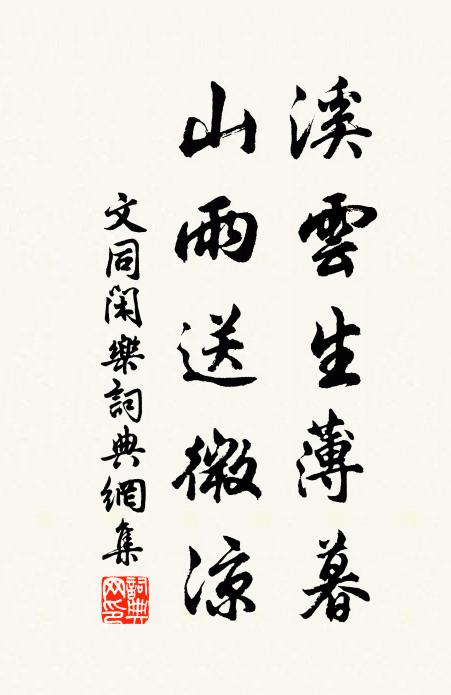 溪雲生薄暮
山雨送微涼
文同閑樂詞典網集
詞典网印